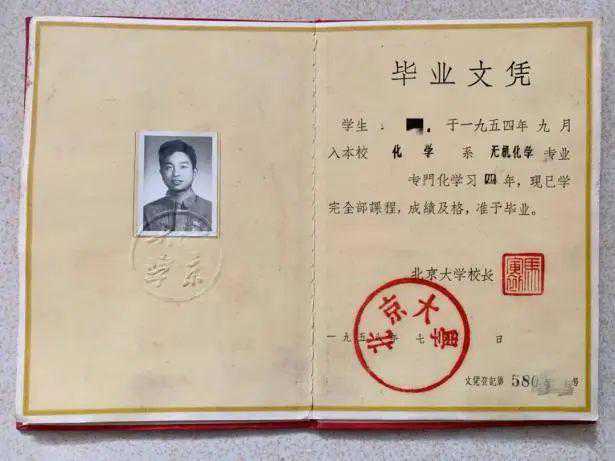 毕业文凭
学生 于一九五四年九月
入本校 化学 系 无机化学 专业
专門化学习四年，现已学
完全部課程，成績及格，准于毕业。
北京大学校长
一九五八年七 日
北京大學
文凭登记第 580 号